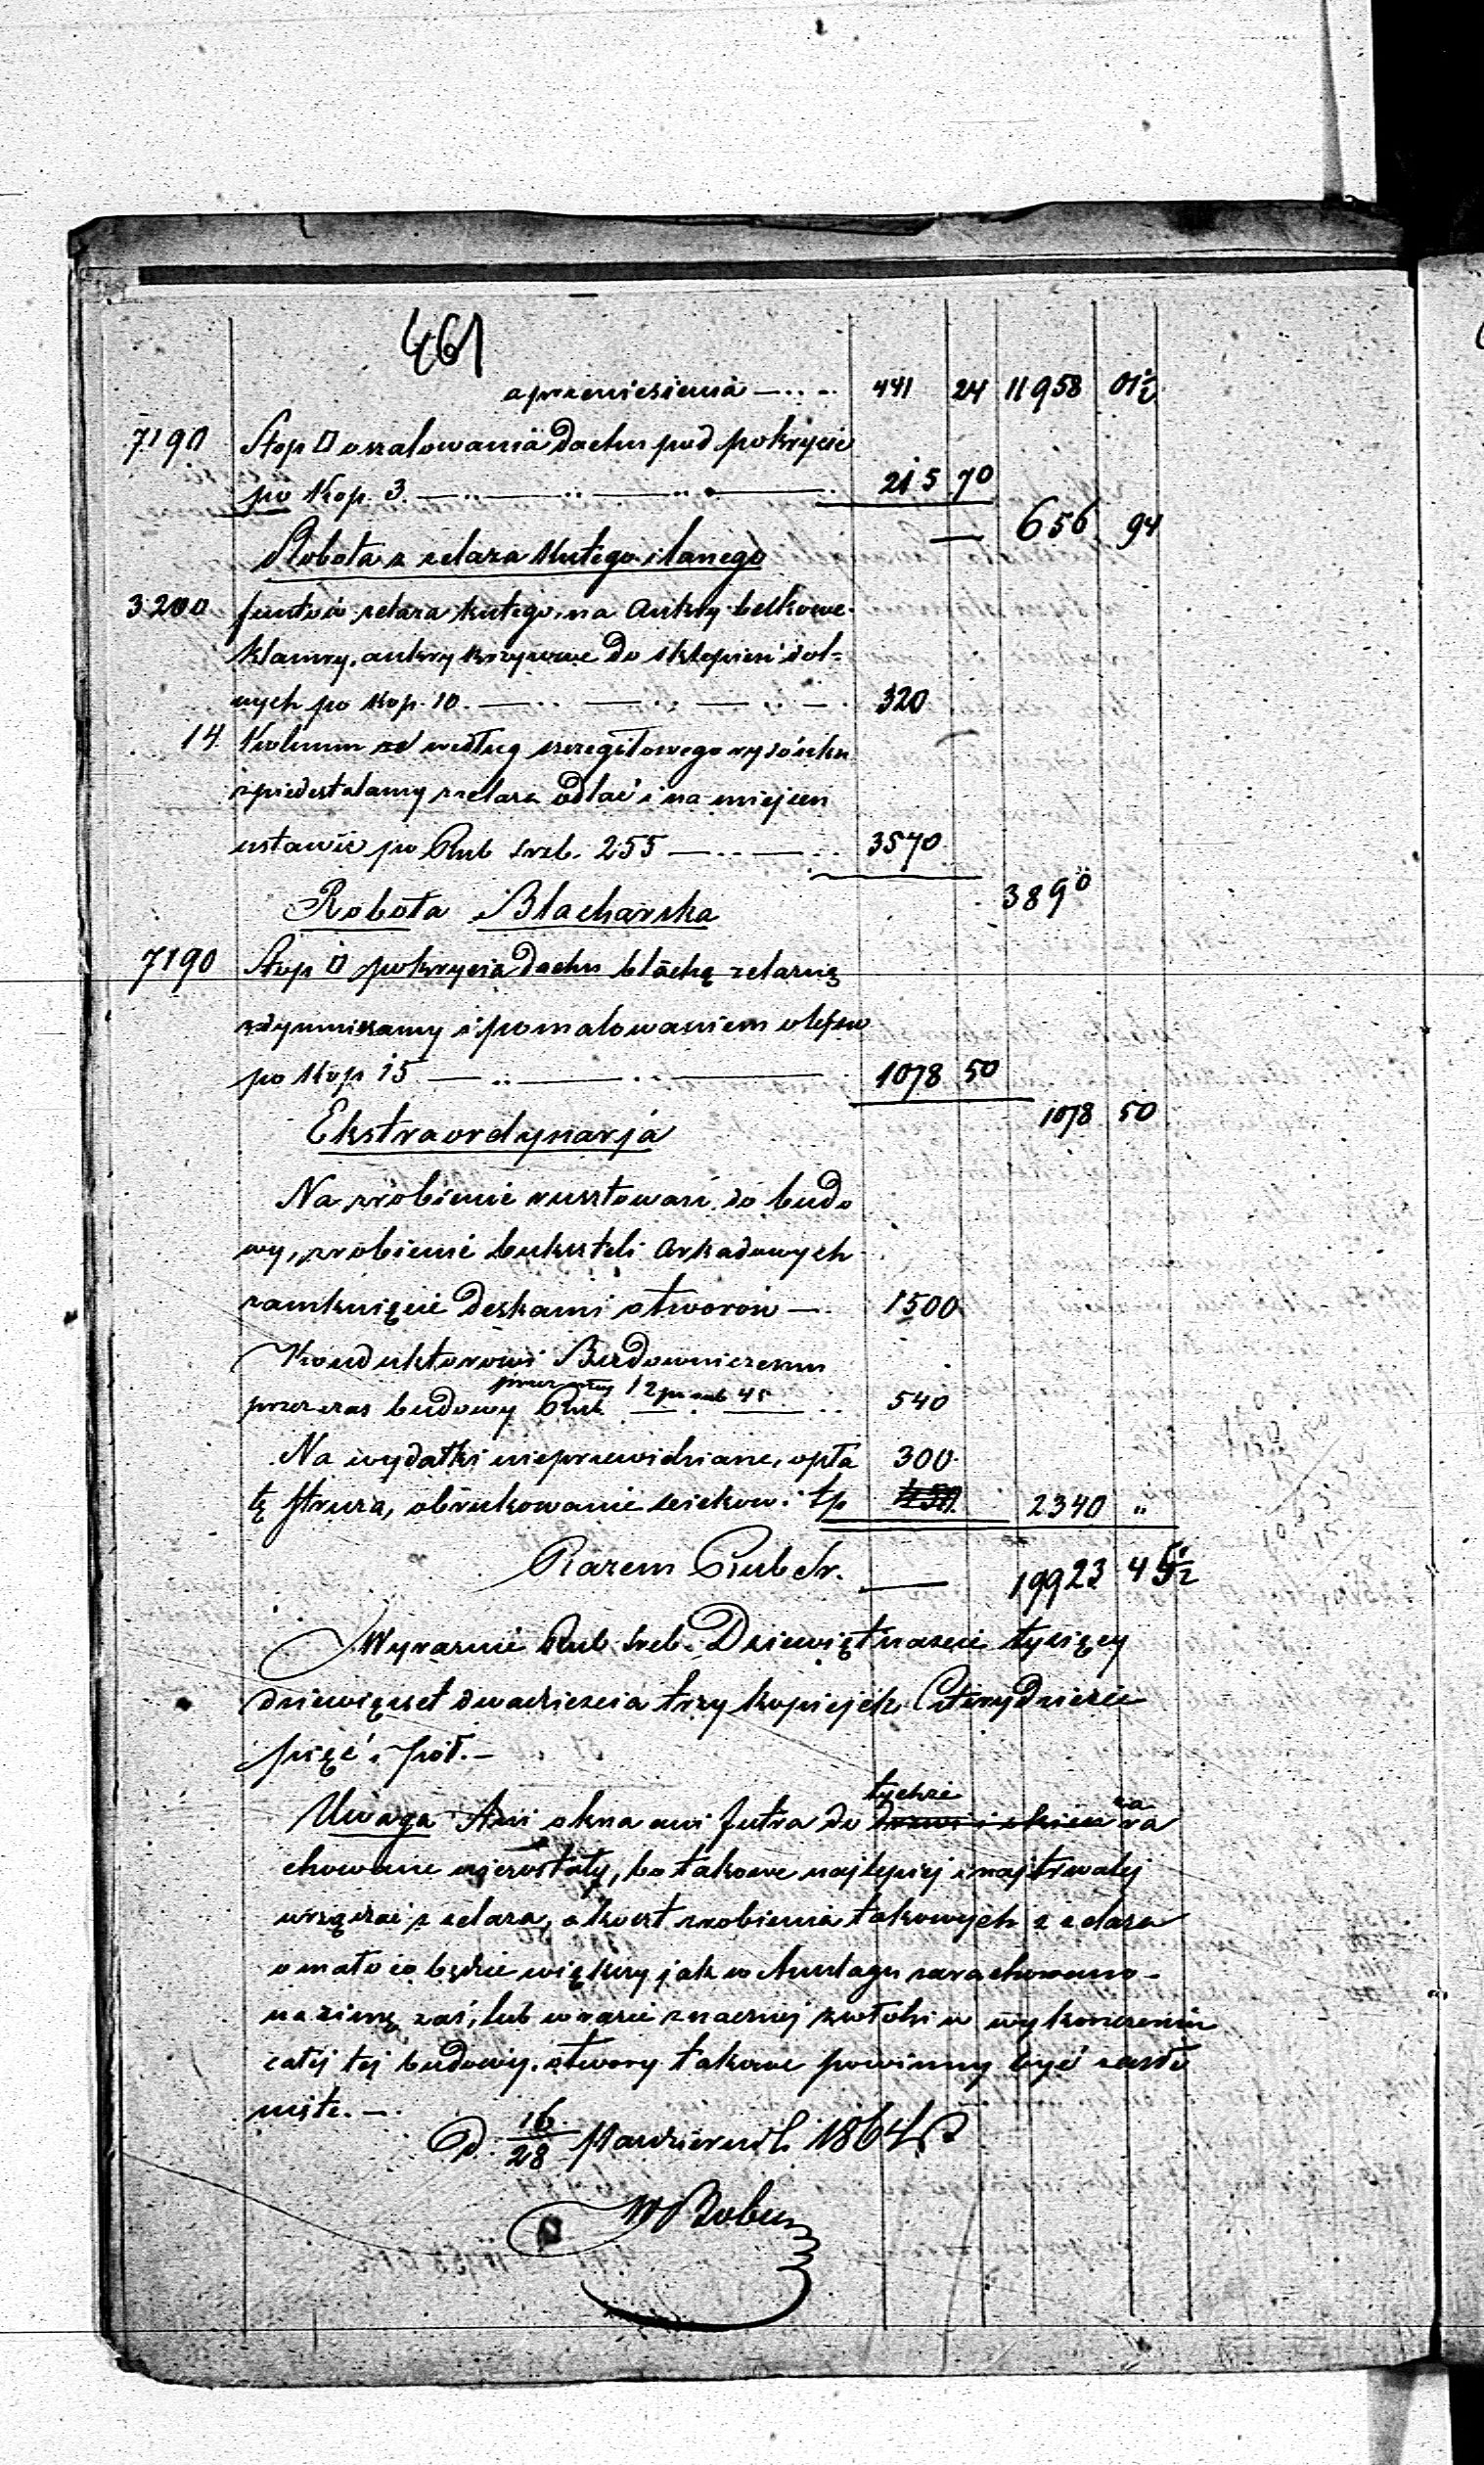 461
z przeniesienia — 441 24 11958 01½
7190 Stop □ oszalowania dachu pod pokrycie
po Kop. 3. — 215 70
— 656 94
Robota z żelaza Kutego i lanego
3200 funtów żelaza kutego, na Ankry belkowe
klamry, ankry krzyżowe do sklepień dol-
nych po Kop. 10. — 320
14 Kolumn według szczegółowego rysónku
z piedestalamy z żelaza odlać i na miejscu
ustawić po Rub srb. 255 — 3570
3890
Robota Blacharska
7190 Stop □ pokrycia dachu blachą żelazną
z dymnikamy i pomalowaniem olejno
po Kop 15 — 1078 50
1078 50
Ekstraordynarja
Na zrobienie rusztowań do budo
wy, zrobienie buksteli Arkadowych
zamknięcie deskami otworów — 1500
Konduktorowi Budowniczemu
12 po rub 45
przez czas budowy Rub — 540
Na wydatki nieprzewidziane, opła 300
tę struża, obrukowanie ścieków i tp 450 2340 „
Razem Rub Sr. — 19923 45½
Wyraźnie Rub Sreb. Dziewiętnaście tysięcy
dziewięćset dwadzieścia trzy kopiejek Czterydzieście
pięć i pół. —
tychże za
Uwaga Ani okna ani futra do drzwi i okien ra
chowane nie zostały, bo takowe najlepiej i najtrwalej
urządzać z żelaza, a koszt zrobienia takowych z żelaza
o mało co będzie większy jak w Anszlagu zarachowano —
na zimę zaś, lub w razie znacznej zwłoki w wykończeniu
całej tej budowy. otwory takowe powinny być zasło
nięte. —
D. 16/28 Październik 1864 r